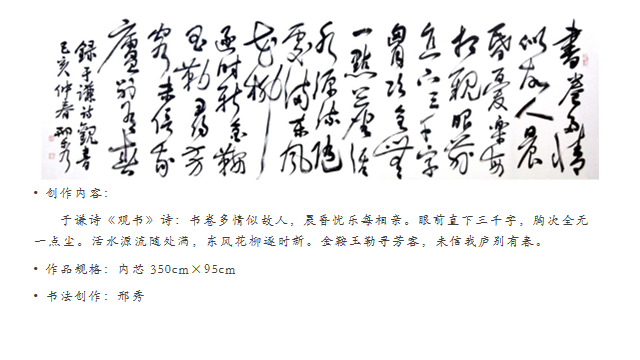 書卷多情
似故人晨
昏憂樂每
相親眼前
直下三千字
胸次全無
一點塵活
水源流隨
處滿東風
花柳
逐時新金鞍
玉勒尋芳
客未信我
廬別有春
錄于謙詩觀書
己亥仲春邢秀
• 创作内容：
于谦诗《观书》诗：书卷多情似故人，晨昏忧乐每相亲。眼前直下三千字，胸次全无
一点尘。活水源流随处满，东风花柳逐时新。金鞍玉勒寻芳客，未信我庐别有春。
• 作品规格：内芯 350cm×95cm
• 书法创作：邢秀